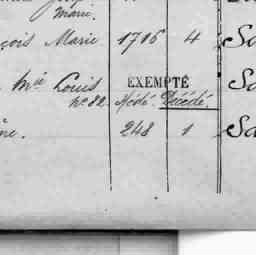 Marie.
çois Marie 1716 4 Sa
Mie Louis EXEMPTÉ Sa
no 82. Décédé.
ne. 248 1 Sa